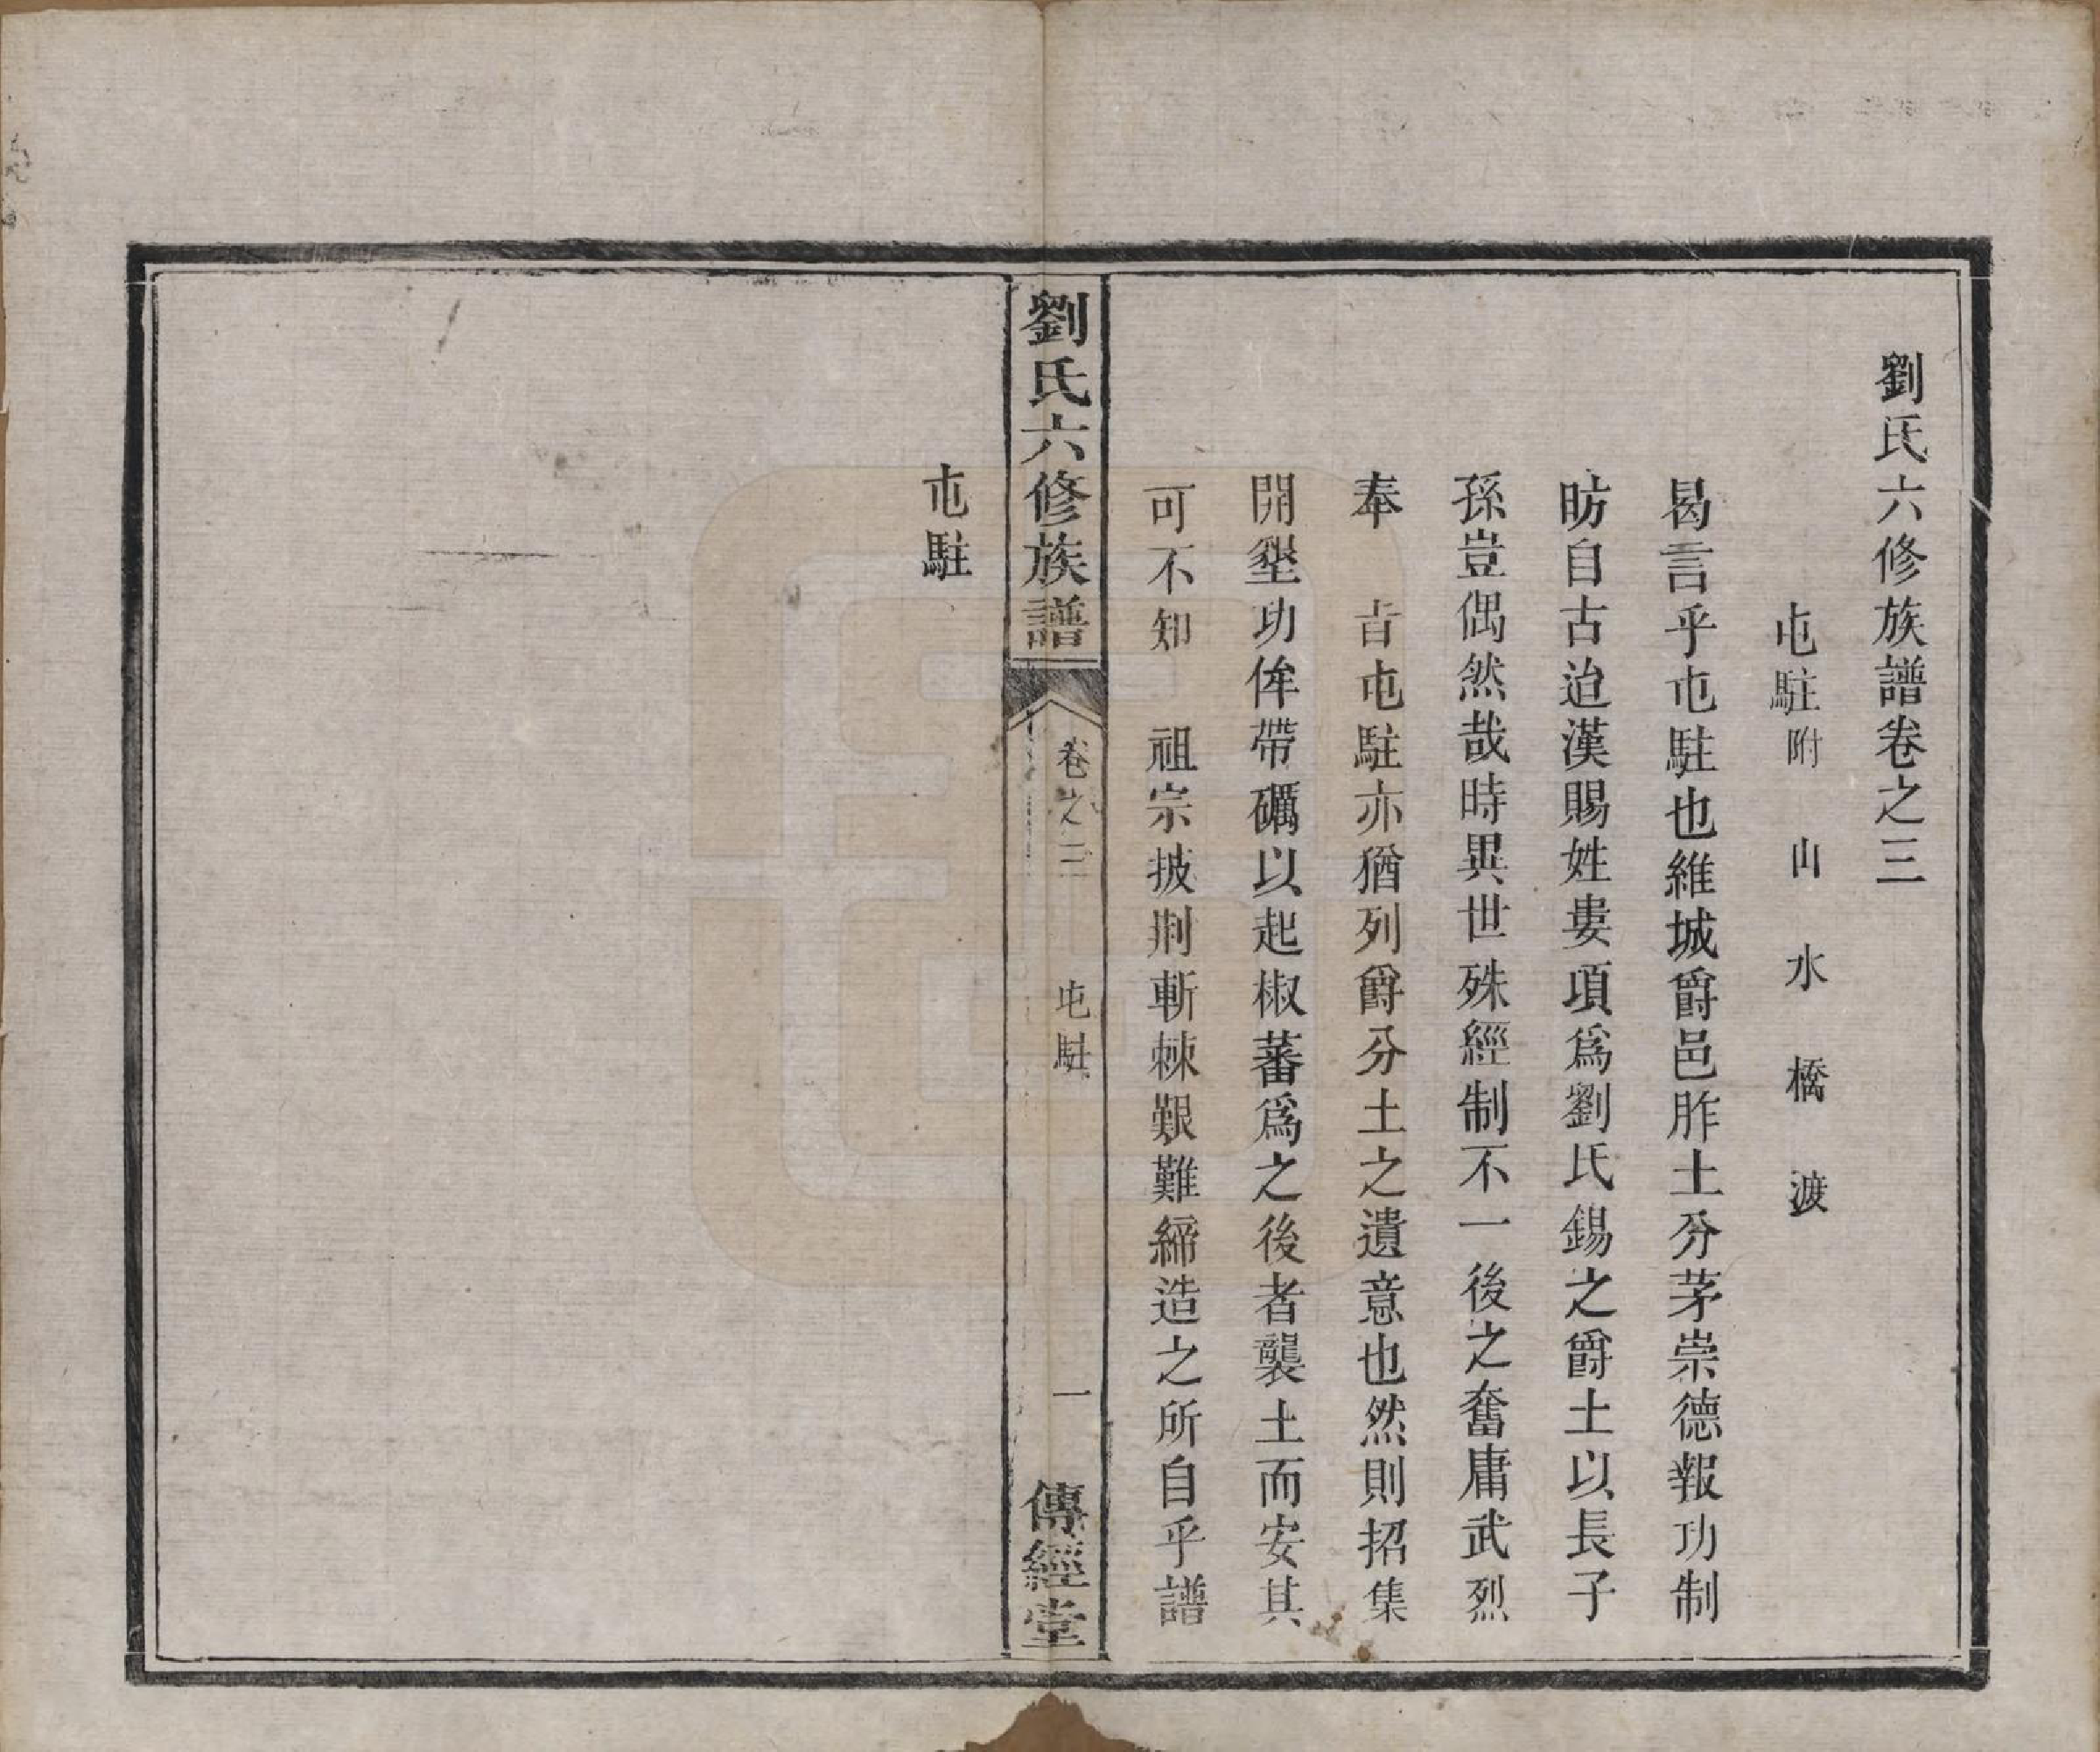 劉氏六修族譜卷之三
屯駐附 山 水 橋 渡
曷言乎屯駐也維城爵邑胙土分茅崇德報功制
昉自古迨漢賜姓婁項爲劉氏錫之爵土以長子
孫豈偶然哉時異世殊經制不一後之奮庸武烈
奉 旨屯駐亦猶列爵分土之遺意也然則招集
開墾功侔帶礪以起椒蕃爲之後者襲土而安其
可不知 祖宗披荆斬棘艱難締造之所自乎譜
劉氏六修族譜 卷之三 屯駐 一 傳經堂
屯駐